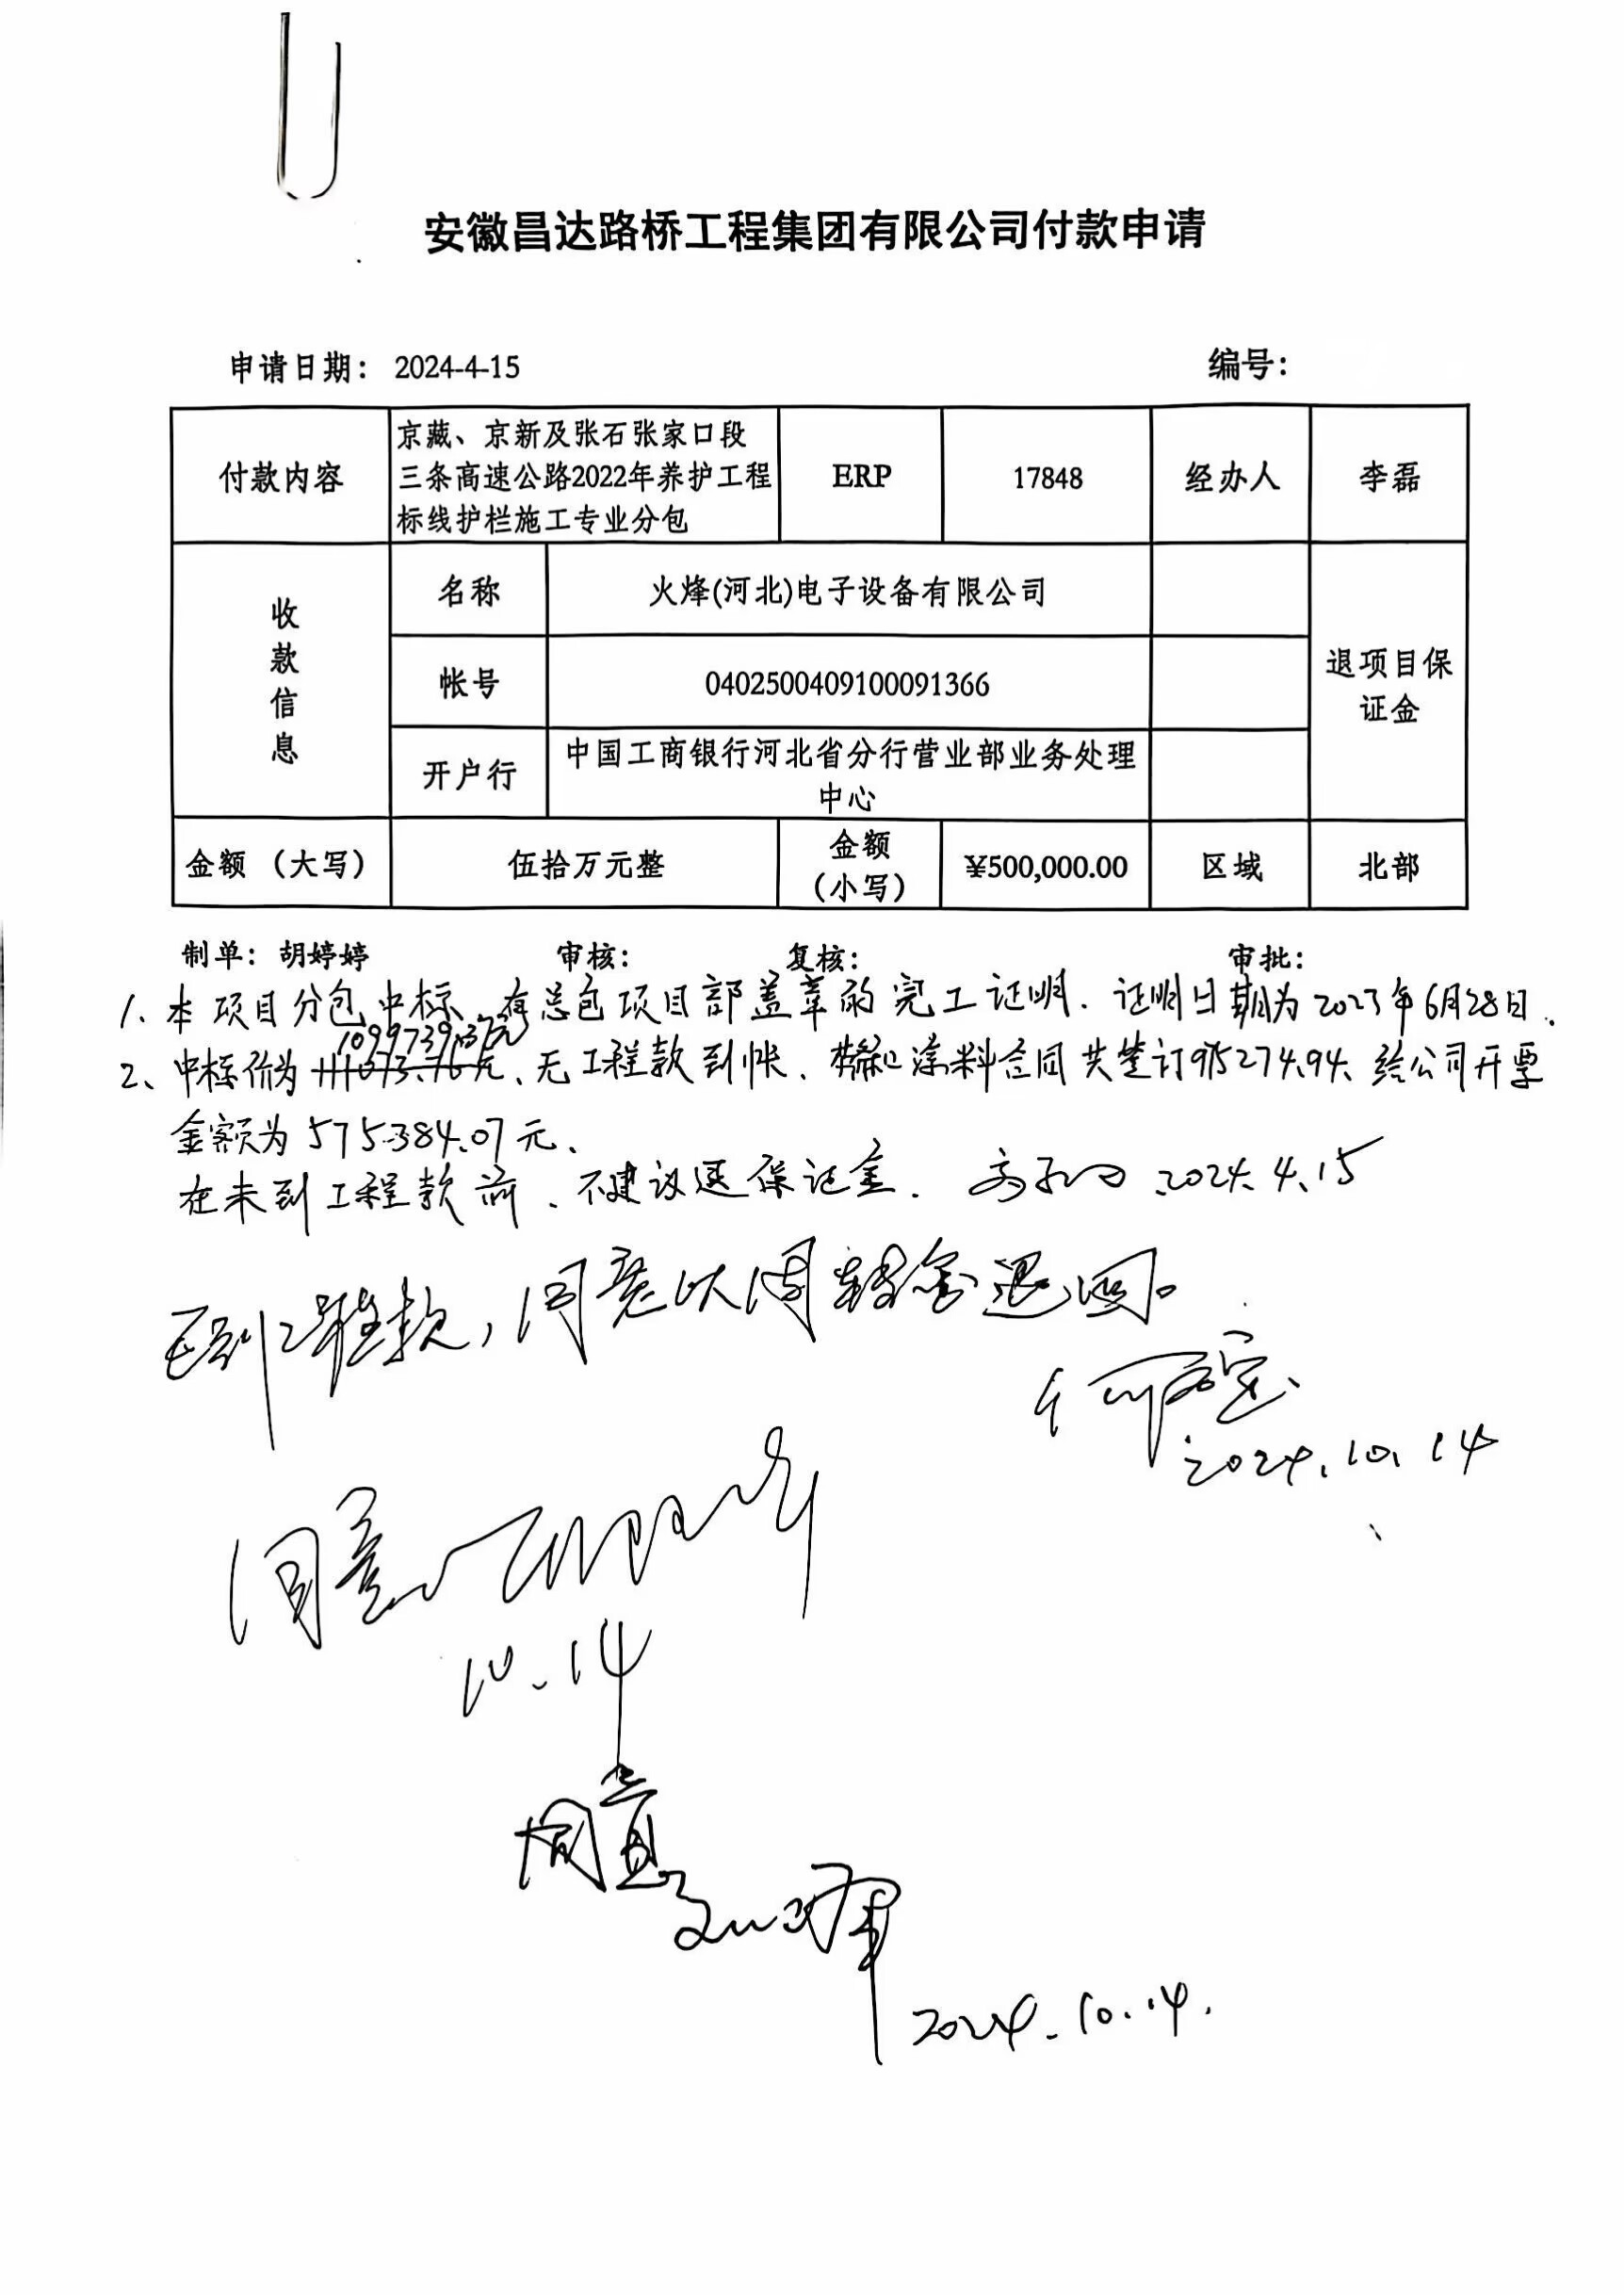 安徽昌达路桥工程集团有限公司付款申请
申请日期: 2024-4-15 编号:
付款内容 京藏、京新及张石张家口段三条高速公路2022年养护工程标线护栏施工专业分包 ERP 17848 经办人 李磊
收款信息 名称 火烽(河北)电子设备有限公司 退项目保证金
帐号 0402500409100091366
开户行 中国工商银行河北省分行营业部业务处理中心
金额（大写） 伍拾万元整 金额（小写） ¥500,000.00 区域 北部
制单: 胡婷婷 审核: 复核: 审批:
1、本项目分包中标、有总包项目部盖章的完工证明. 证明日期为2023年6月28日.
2、中标价为 元、无工程款到帐. 涂料合同共签订 给公司开票
金额为575384.07元、
在未到工程款前、不建议退保证金. 2024.4.15
工程款,同意以周转金退回。
2024.10.14
同意
10.14
同意
2024.10.14.